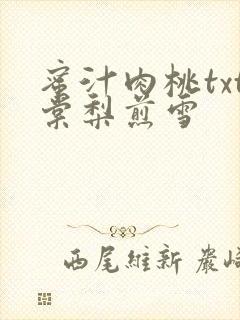 蜜汁肉桃txt
棠梨煎雪
西尾維新 巖崎